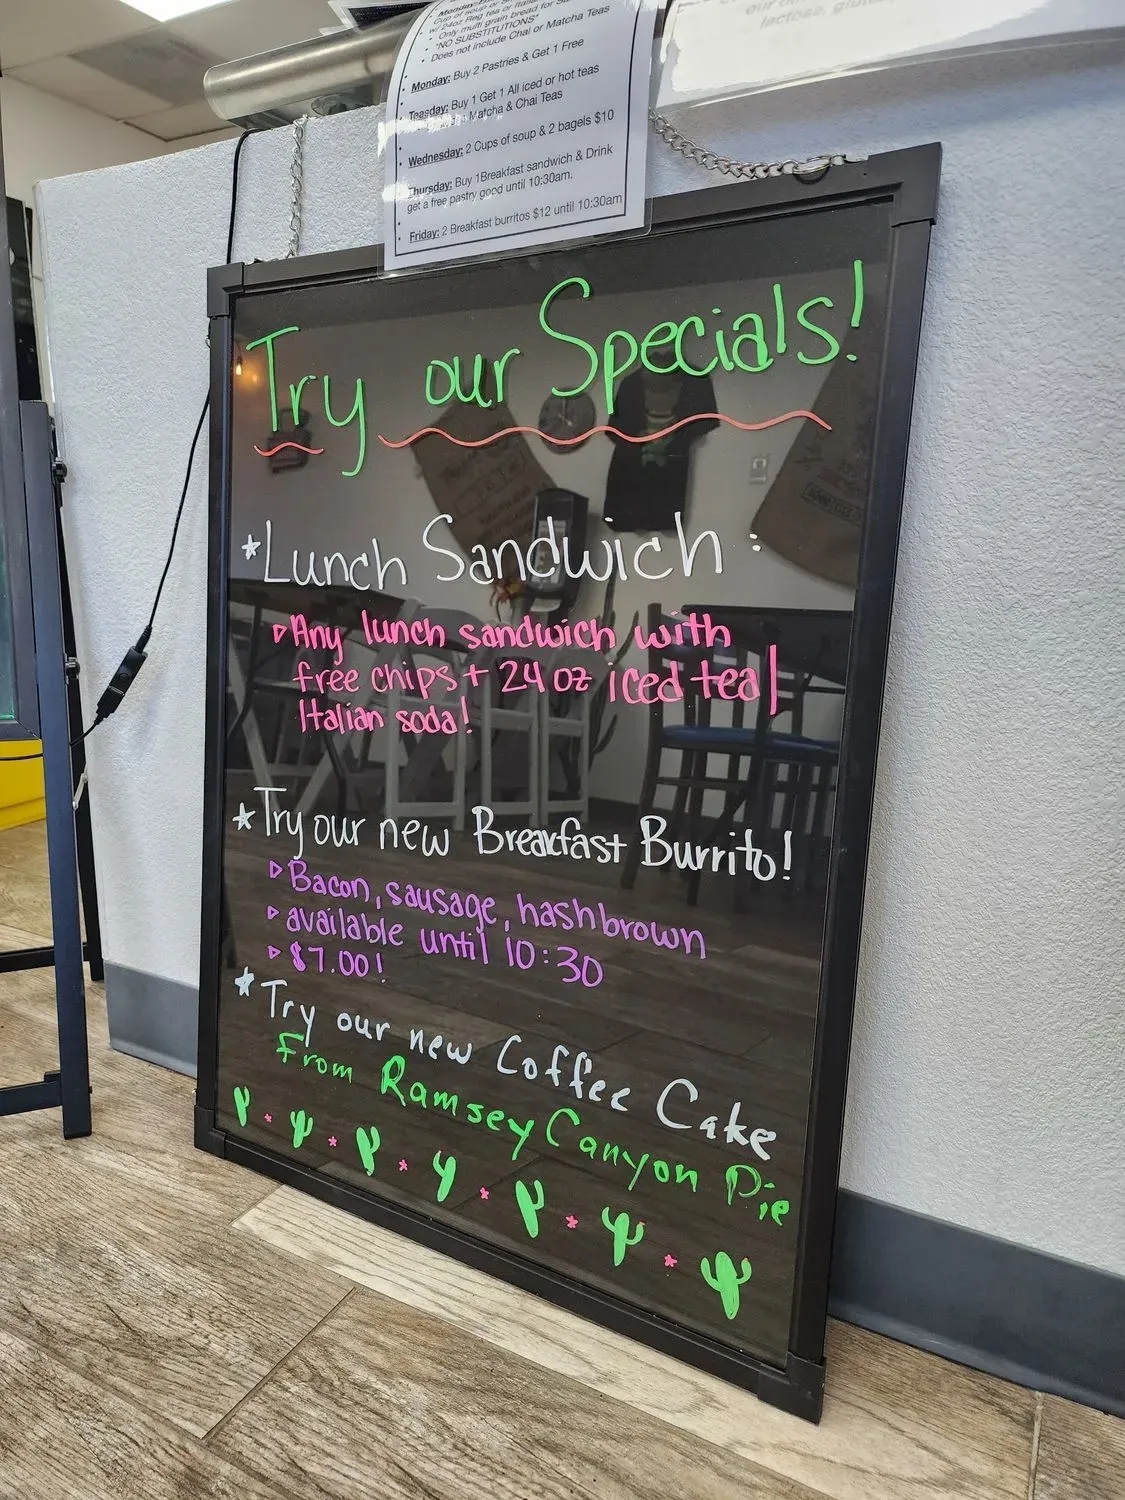 Cup of soup or
w/ 24oz Reg tea or Italian
• Only multi grain bread for
• *NO SUBSTITUTIONS*
• Does not include Chai or Matcha Teas
• Monday: Buy 2 Pastries & Get 1 Free
• Teasday: Buy 1 Get 1 All iced or hot teas
Matcha & Chai Teas
• Wednesday: 2 Cups of soup & 2 bagels $10
• Thursday: Buy 1Breakfast sandwich & Drink
get a free pastry good until 10:30am.
• Friday: 2 Breakfast burritos $12 until 10:30am
lactose,
Try our Specials!
*Lunch Sandwich:
▹Any lunch sandwich with
free chips + 24 oz iced tea|
Italian soda!
*Try our new Breakfast Burrito!
▹Bacon, sausage, hashbrown
▹available until 10:30
▹$7.00!
*Try our new Coffee Cake
From Ramsey Canyon Pie